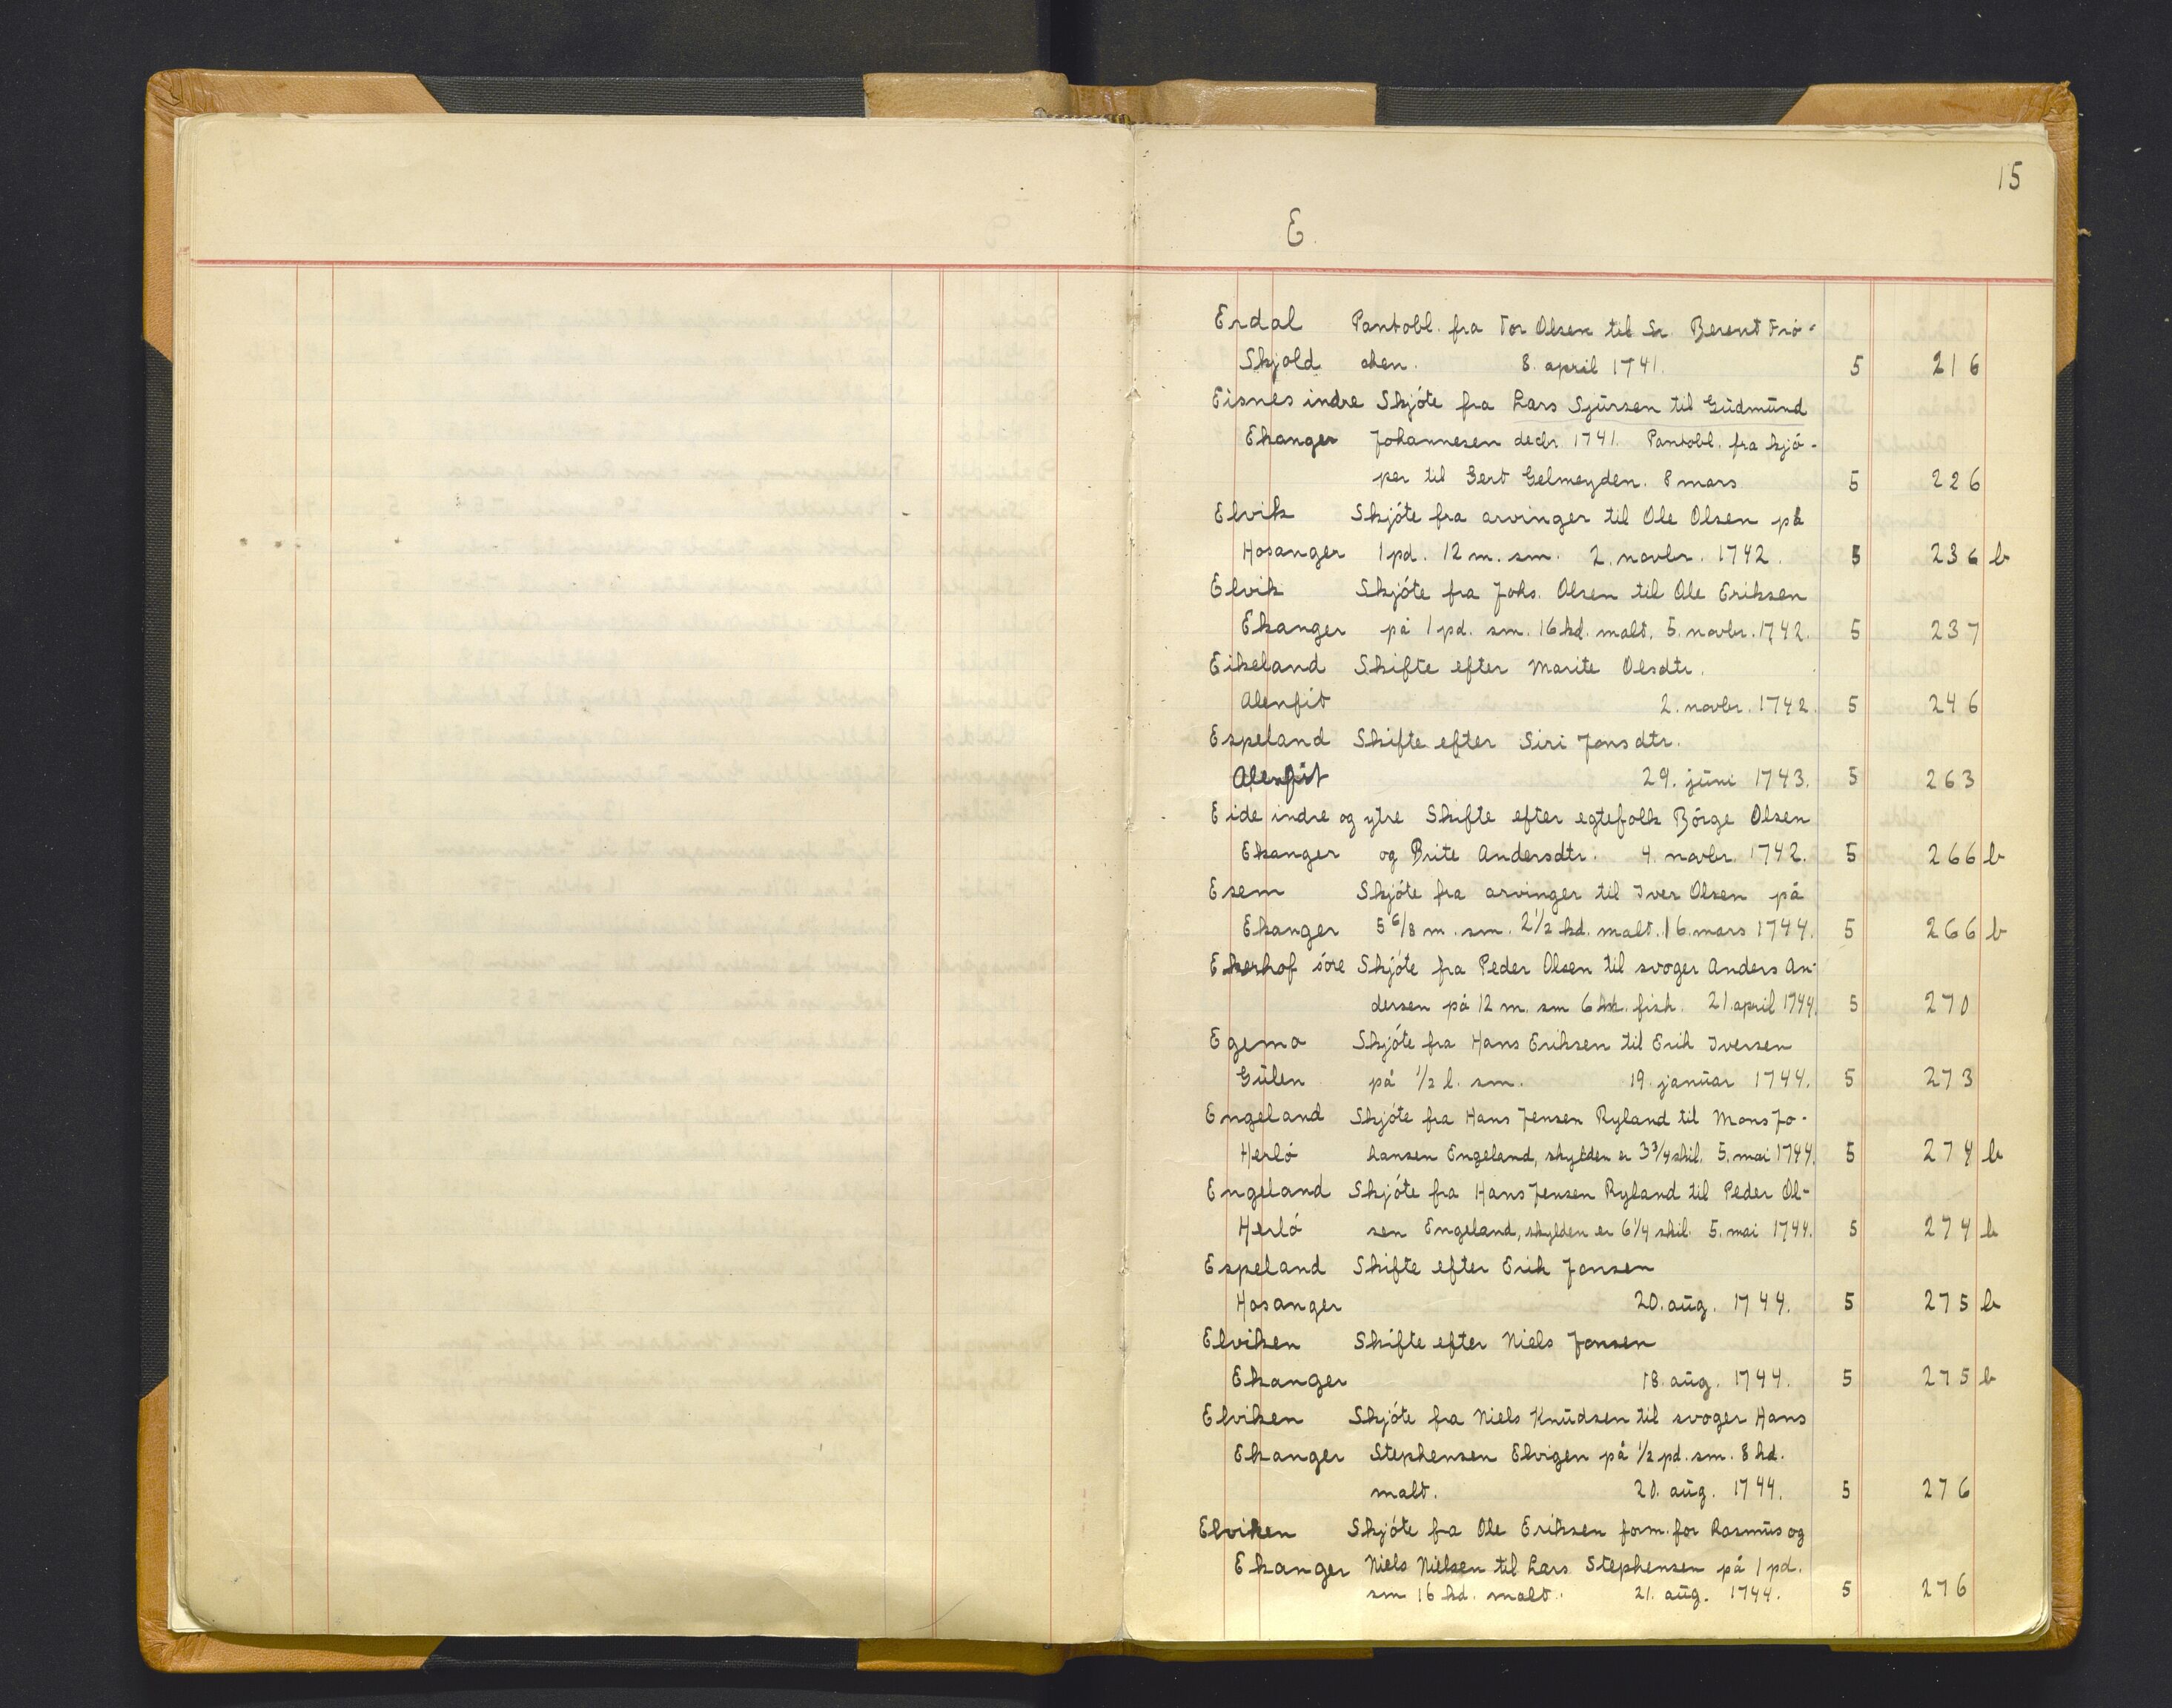 15
E
Erdal Pantobl. fra Tor Olsen til Sr Berent Frö-
Skjold chen. 8. april 1741. 5 216
Eisnes indre Skjöte fra Lars Sjursen til Gudmund
Ekanger Johannesen decbr. 1741. Pantobl. fra kjö-
per til Gert Gelmeyden. 8 mars 5 226
Elvik Skjöte fra arvinger til Ole Olsen på
Hosanger 1 pd. 12 m. sm. 2. novbr. 1742. 5 236 b
Elvik Skjöte fra Johs. Olsen til Ole Eriksen
Ekanger på 1 pd. sm. 16 kd. malt. 5. novbr. 1742. 5 237
Eikeland Skifte efter Marite Olsdtr.
Alenfit 2. novbr. 1742. 5 246
Espeland Skifte efter Siri Jonsdtr.
Alenfit 29. juni 1743. 5 263
Eide indre og ytre Skifte efter egtefolk Börge Olsen
Ekanger og Brite Andersdtr. 4. novbr. 1742. 5 266 b
Esem Skjöte fra arvinger til Iver Olsen på
Ekanger 5 6/8 m. sm. 2 1/2 kd. malt. 16. mars 1744. 5 266 b
Ekerhof söre Skjöte fra Peder Olsen til svoger Anders An-
dersen på 12 m. sm 6 mk. fisk. 21 april 1744. 5 270
Egemo Skjöte fra Hans Eriksen til Erik Iversen
Gulen på 1/2 l. sm. 19. januar 1744. 5 273
Engeland Skjöte fra Hans Jensen Ryland til Mons Jo-
Herlö hansen Engeland, skylden er 3 3/4 skil. 5. mai 1744. 5 274 b
Engeland Skjöte fra Hans Jensen Ryland til Peder Ol-
Herlö sen Engeland, skylden er 6 1/4 skil. 5. mai 1744. 5 274 b
Espeland Skifte efter Erik Jonsen
Hosanger 20. aug. 1744. 5 275 b
Elviken Skifte efter Niels Jonsen
Ekanger 18. aug. 1744. 5 275 b
Elviken Skjöte fra Niels Knudsen til svoger Hans
Ekanger Stephensen Elvigen på 1/2 pd. sm. 8 kd.
malt. 20. aug. 1744. 5 276
Elviken Skjöte fra Ole Eriksen form. for Rasmus og
Ekanger Niels Nielsen til Lars Stephensen på 1 pd.
sm 16 kd. malt. 21. aug. 1744. 5 276